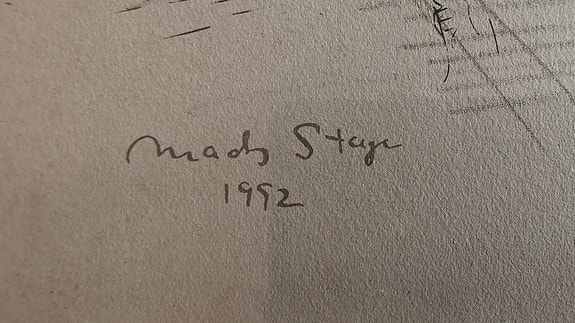 Mads Stage
1992